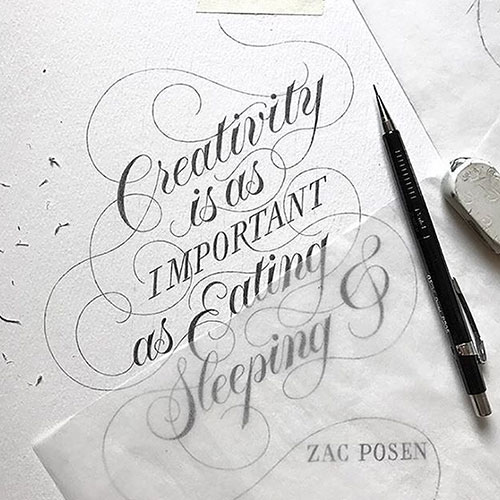 Creativity
is as
IMPORTANT
as Eating
& Sleeping
ZAC POSEN